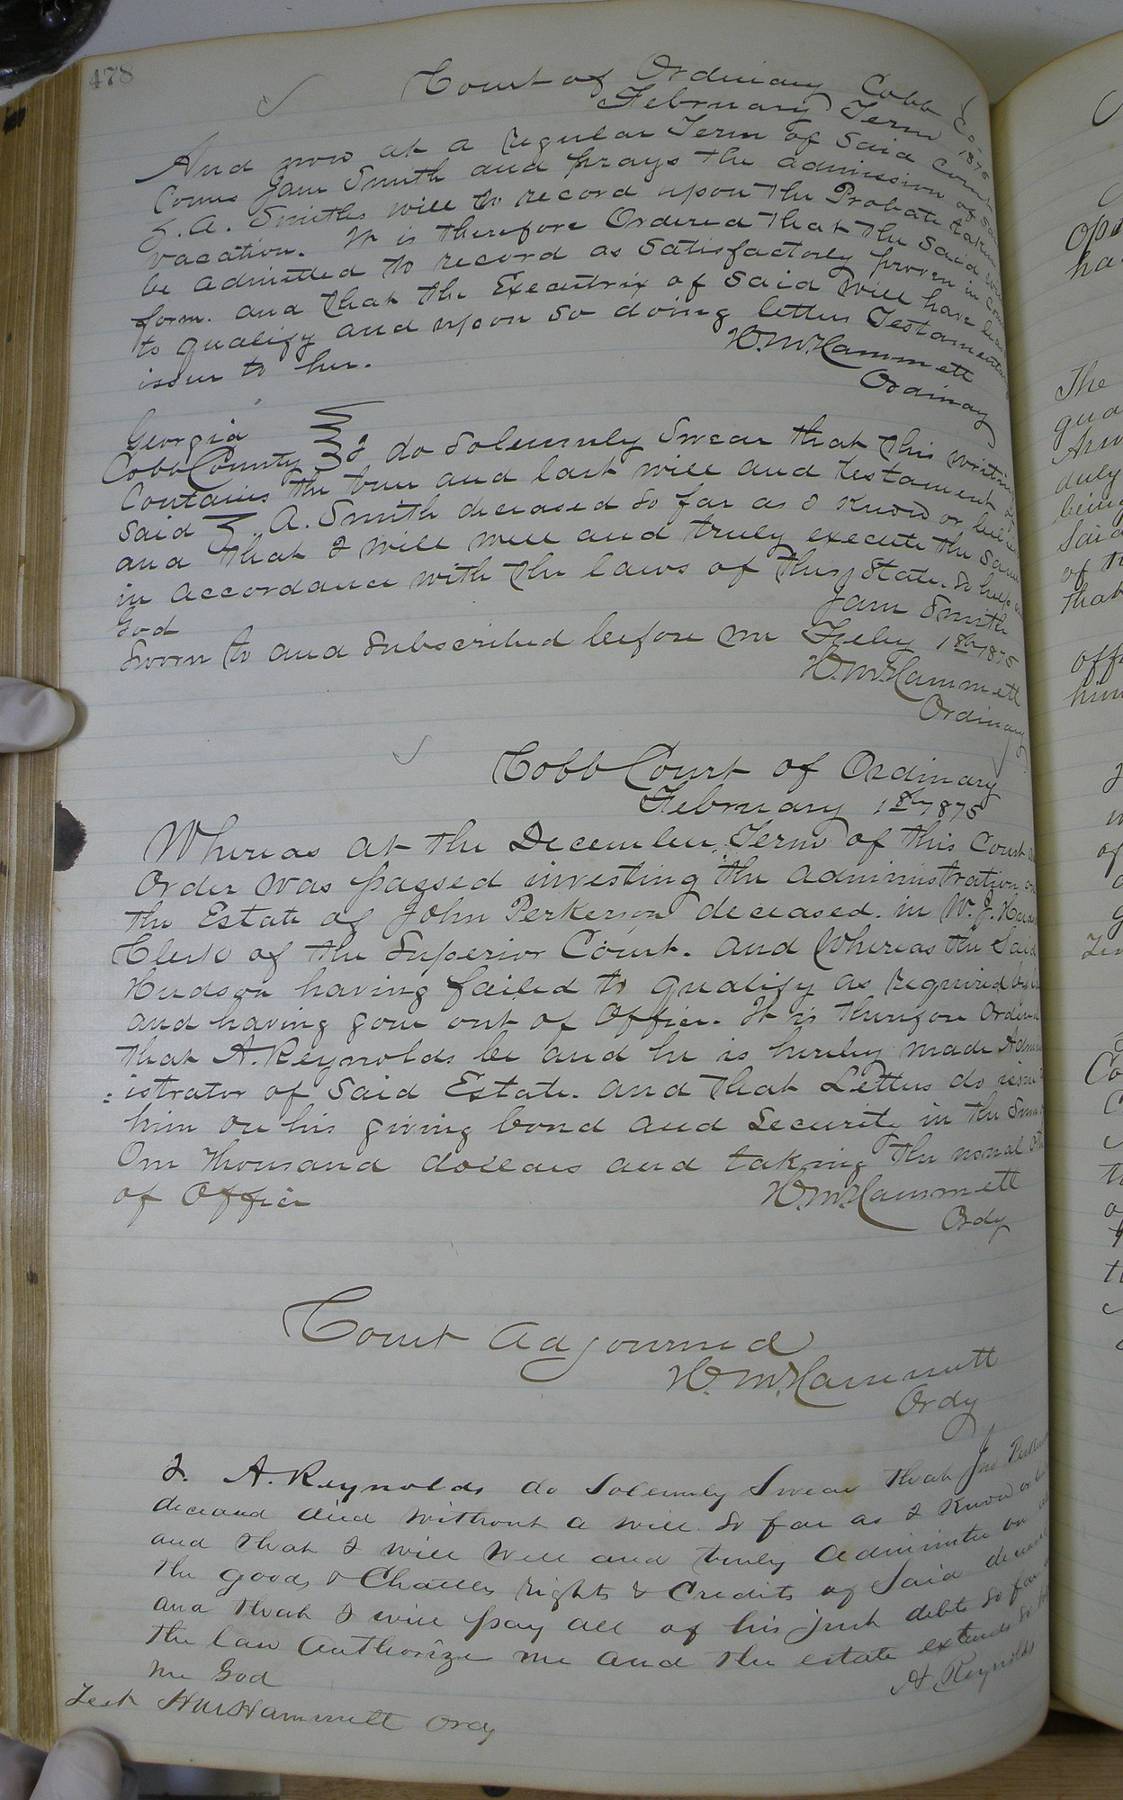 478
Court of Ordinary Cobb Co
February Term 1875
And now at a regular Term of Said Court
Comes Jane Smith and prays the admission of Sa
Z. A. Smiths will to record upon the Probate taken
vacation. It is therefore Ordered that the Said will
be admitted to record as satisfactorly proven in
form. and that the Executrix of Said will have leave
to qualify and upon so doing letters Testamentary
issue to her.
W. M. Hammett
Ordinary
Georgia
Cobb County I do Solemnly Swear that this writing
Contains the true and last will and testament of
Said Z. A. Smith deceased so far as I Know or believe
and that I will well and truly execute the Same
in accordance with the laws of this State. So help
God
Jane Smith
Sworn to and Subscribed before me Feby 1st 1875
W. M. Hammett
Ordinary
Cobb Court of Ordinary
February 1st 1875
Whereas at the December Term of this Court
Order was passed investing the administration on
the Estate of John Perkerson deceased. in W. J. Hudson
Clerk of the Superior Court. and Whereas the Said
Hudson having failed to qualify as required by
and having gone out of Office. It is Therefore Ordered
that A. Reynolds be and he is hereby made Admin
:istrator of Said Estate. and that Letters do issue
him on his giving bond and Security in the Sum
One thousand dollars and taking the usual
of Office
W. M. Hammett
Ordy
Court adjourned
W. M. Hammett
Ordy
I. A. Reynolds do Solemnly Swear that Jno
deceased died without a will so far as I Know or
and that I will well and truly administer on
the goods & Chattles rights & Credits of Said deceased
and that I will pay all of his just debts so far
the law Authorize me and the estate extends so
me God
A. Reynolds
Test W M Hammett Ordy